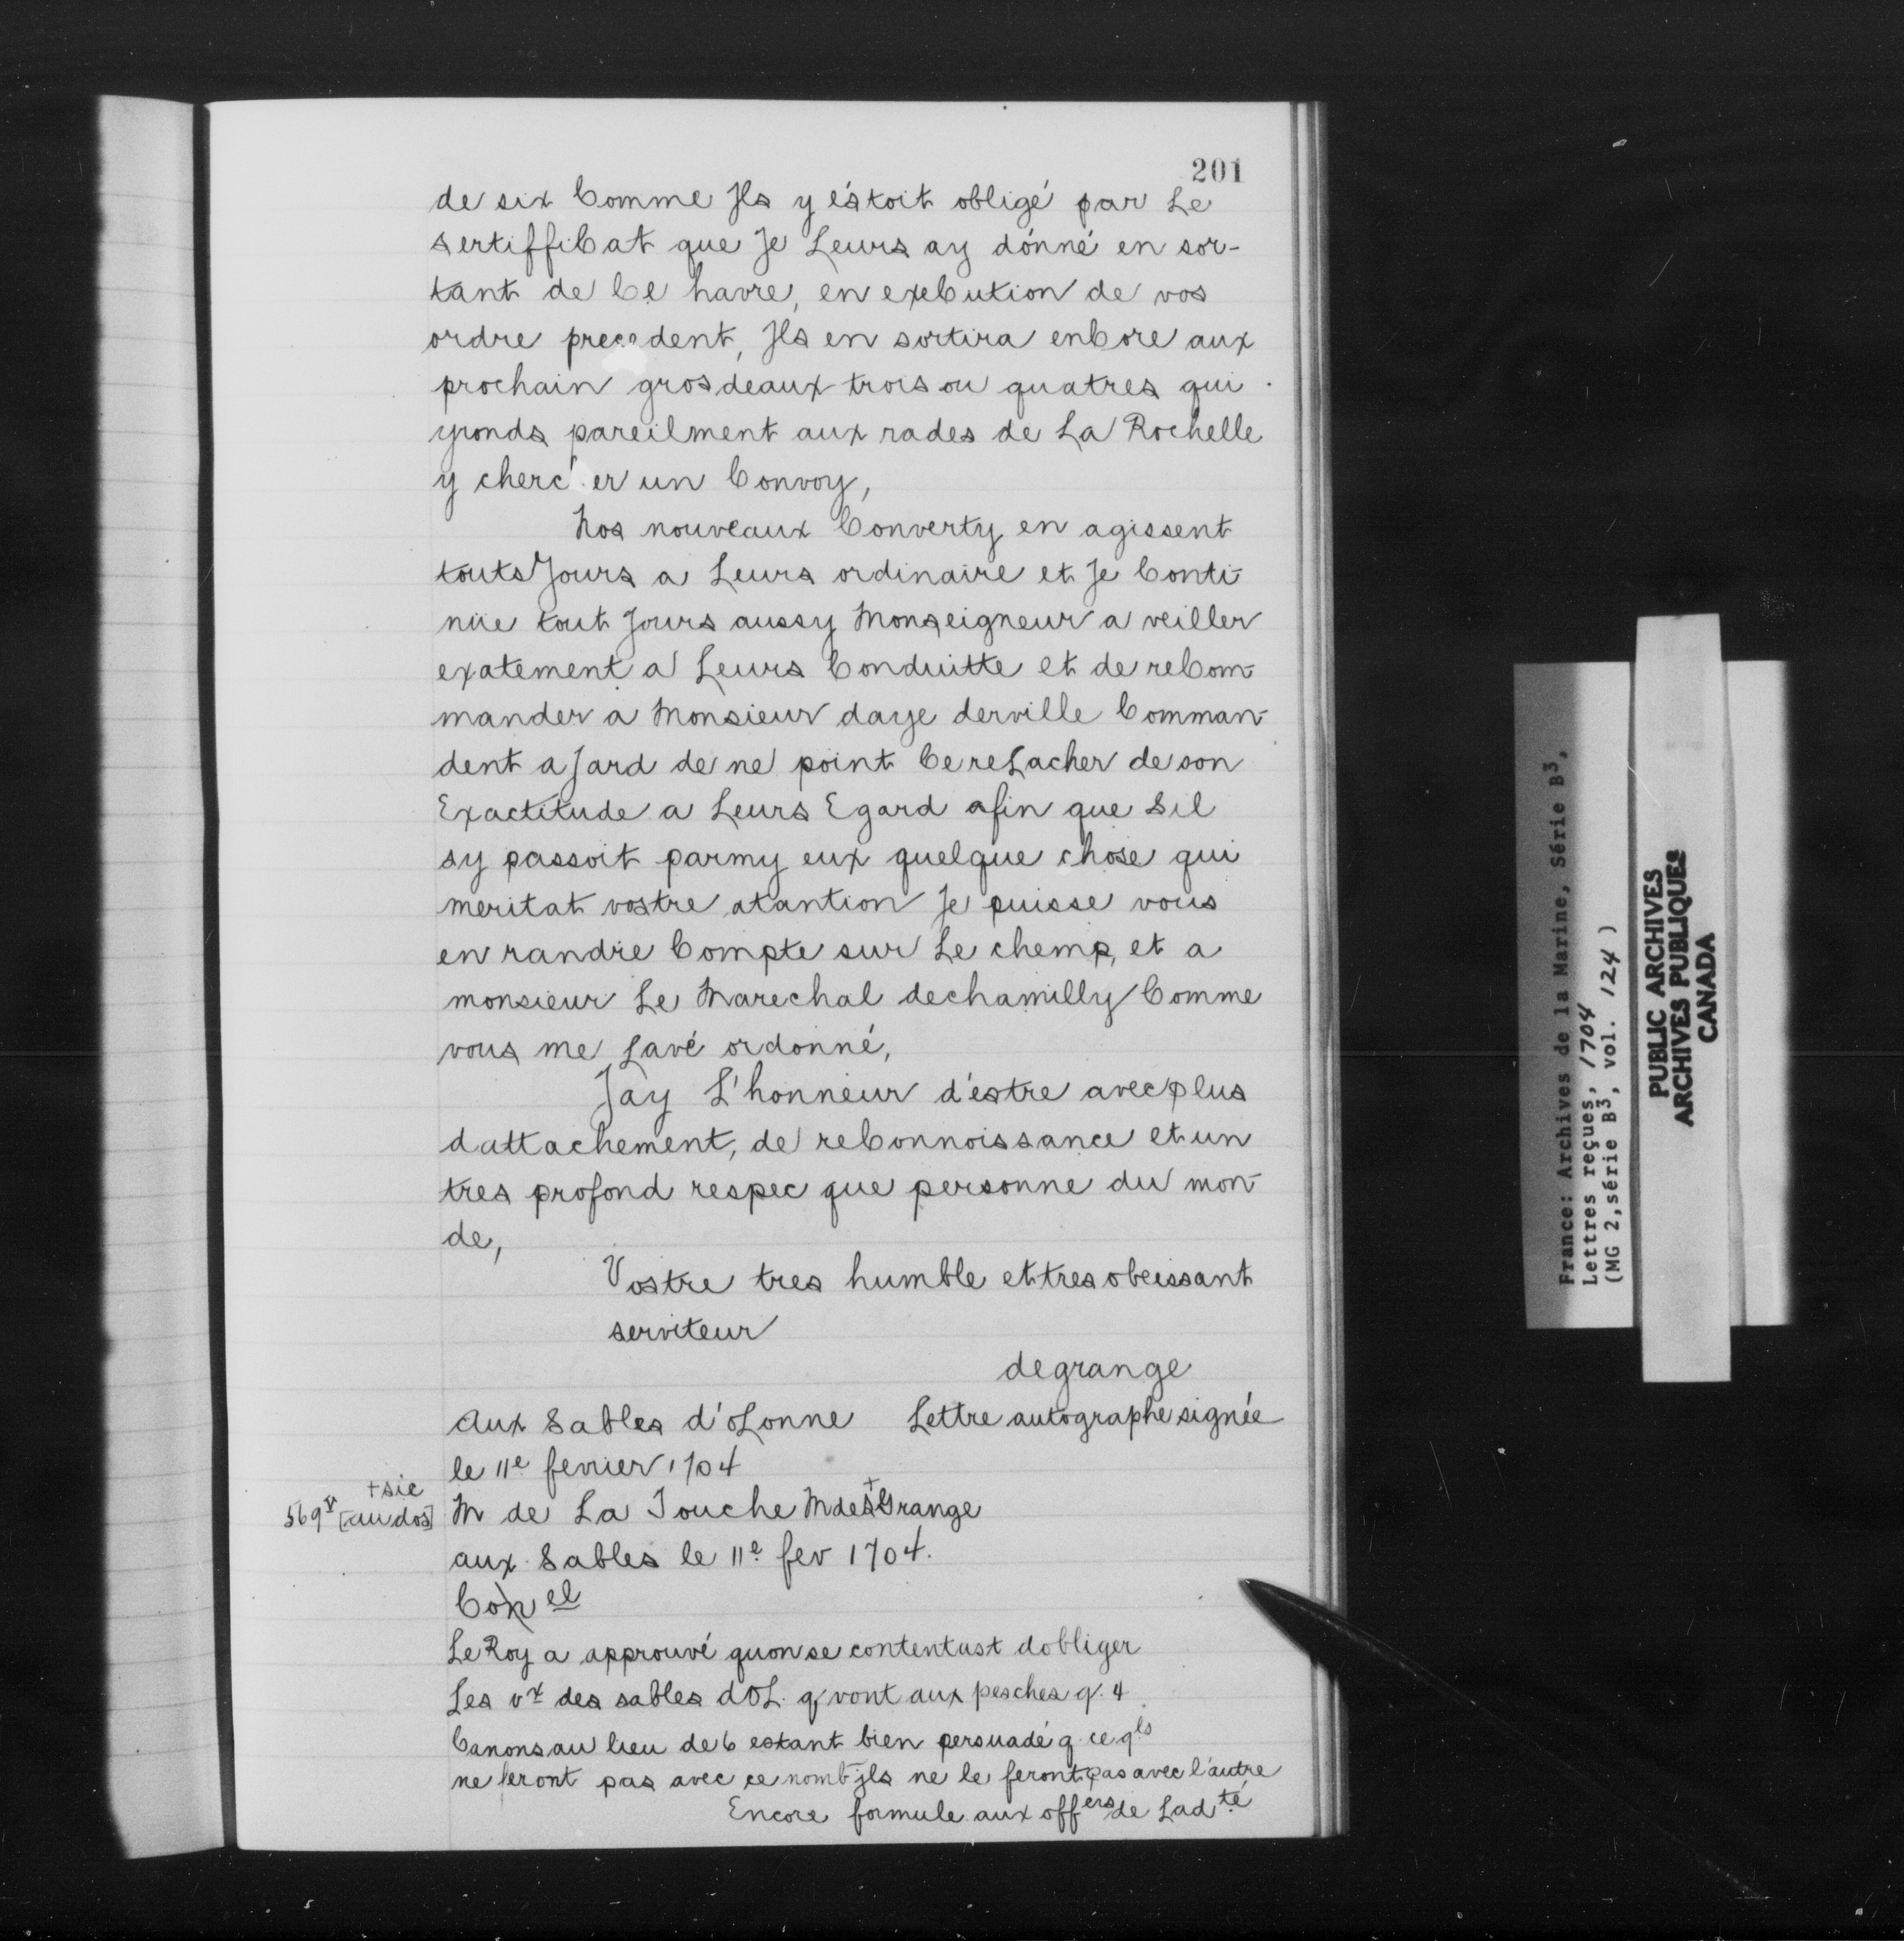 201
de six Comme Jls y éstoit obligé par Le
sertiffiCat que Je Leurs ay dónné en sor-
tant de Ce havre, en exeCution de vos
ordre precedent, Jls en sortira enCore aux
prochain grosdeaux trois ou quatres qui
yronds pareilment aux rades de La Rochelle
y chercher un Convoy,
Nos nouveaux Converty en agissent
touts Jours a Leurs ordinaire et Je Conti-
nüe tout Jours aussy Monseigneur a veiller
exatement a Leurs Conduitte et de reCom-
mander a Monsieur daye derville Comman-
dent a Jard de ne point Ce reLacher de son
Exactitude a Leurs Egard afin que Sil
sy passoit parmy eux quelque chose qui
meritat vostre atantion Je puisse vous
en randre Compte sur Le chemp, et a
monsieur Le Marechal dechamilly Comme
vous me Lavé ordonné,
Jay L'honneur d'éstre avec plus
dattachement, de reConnoissance et un
tres profond respec que personne du mon-
de,
Vostre tres humble et tres obeissant
serviteur
degrange
Aux Sables d'oLonne Lettre autographe signée
le 11e fevrier 1704
+sic
569v [au dos] M de La Touche M des+ Grange
aux Sables le 11e fev 1704.
Con el
Le Roy a approuvé quon se contentast dobliger
Les vx des sables dOL. q vont aux pesches q. 4
Canons au lieu de 6 estant bien persuadé q. ce qls
ne feront pas avec ce nomb jls ne le feront pas avec l'autre
Encore formule aux offers de Ladté
France: Archives de la Marine, Série B3,
Lettres reçues, 1704
(MG 2, série B3, vol. 124 )
PUBLIC ARCHIVES
ARCHIVES PUBLIQUES
CANADA